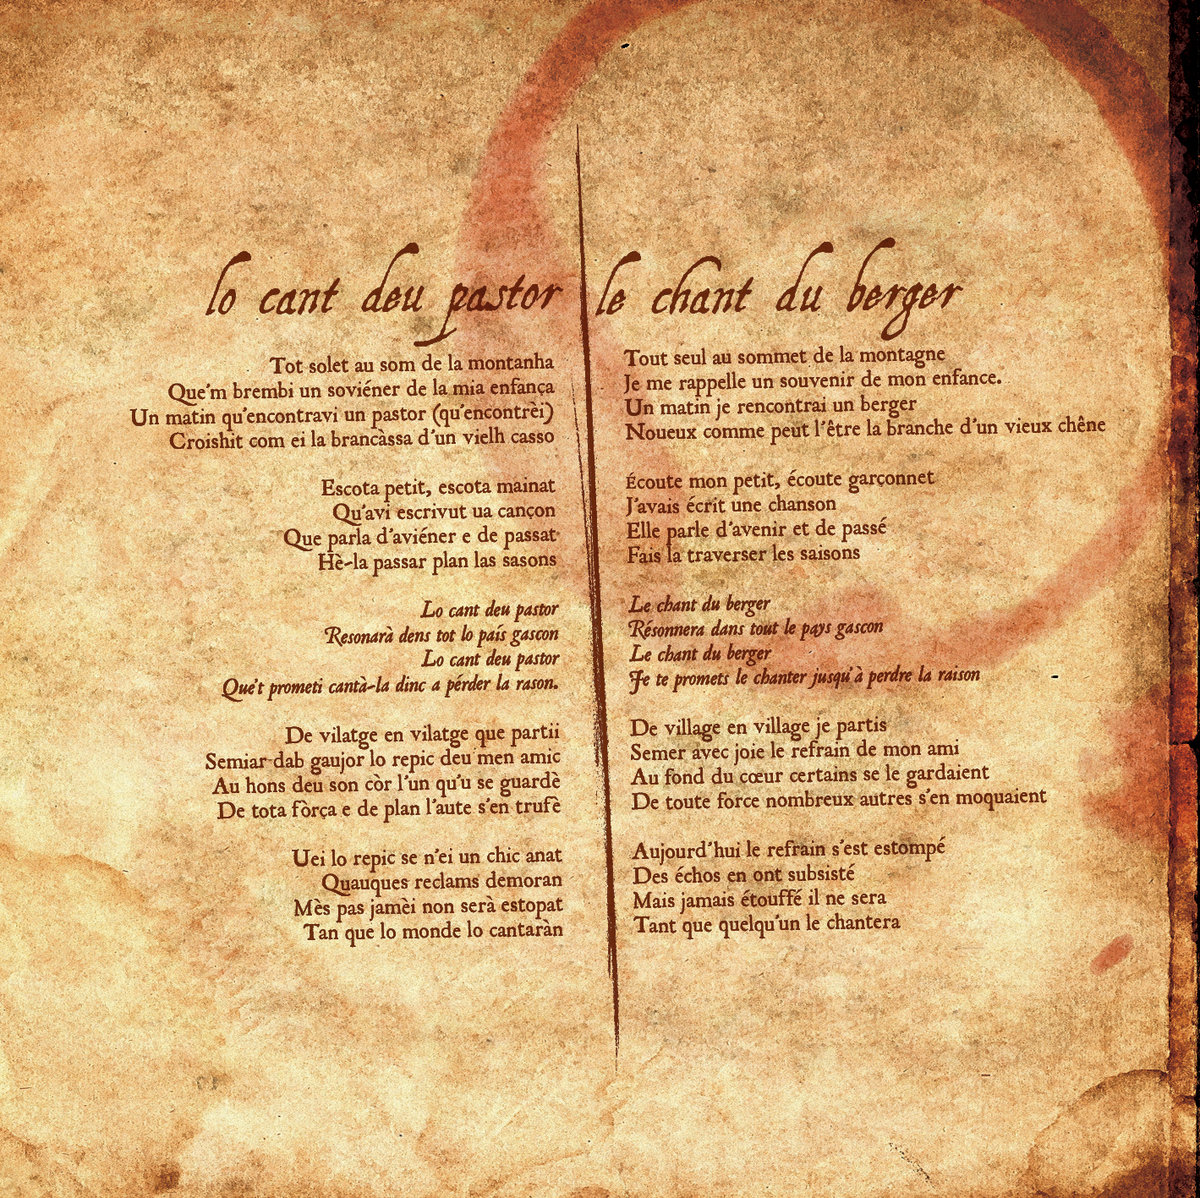 lo cant deu pastor
Tot solet au som de la montanha
Que'm brembi un soviéner de la mia enfança
Un matin qu'encontravi un pastor (qu'encontrèi)
Croishit com ei la brancàssa d'un vielh casso
Escota petit, escota mainat
Qu'avi escrivut ua cançon
Que parla d'aviéner e de passat
Hè-la passar plan las sasons
Lo cant deu pastor
Resonarà dens tot lo país gascon
Lo cant deu pastor
Que't prometi cantà-la dinc a pérder la rason.
De vilatge en vilatge que partii
Semiar dab gaujor lo repic deu men amic
Au hons deu son còr l'un qu'u se guardè
De tota fòrça e de plan l'aute s'en trufè
Uei lo repic se n'ei un chic anat
Quauques reclams demoran
Mès pas jamèi non serà estopat
Tan que lo monde lo cantaràn
le chant du berger
Tout seul au sommet de la montagne
Je me rappelle un souvenir de mon enfance.
Un matin je rencontrai un berger
Noueux comme peut l'être la branche d'un vieux chêne
Écoute mon petit, écoute garçonnet
J'avais écrit une chanson
Elle parle d'avenir et de passé
Fais la traverser les saisons
Le chant du berger
Résonnera dans tout le pays gascon
Le chant du berger
Je te promets le chanter jusqu'à perdre la raison
De village en village je partis
Semer avec joie le refrain de mon ami
Au fond du cœur certains se le gardaient
De toute force nombreux autres s'en moquaient
Aujourd'hui le refrain s'est estompé
Des échos en ont subsisté
Mais jamais étouffé il ne sera
Tant que quelqu'un le chantera